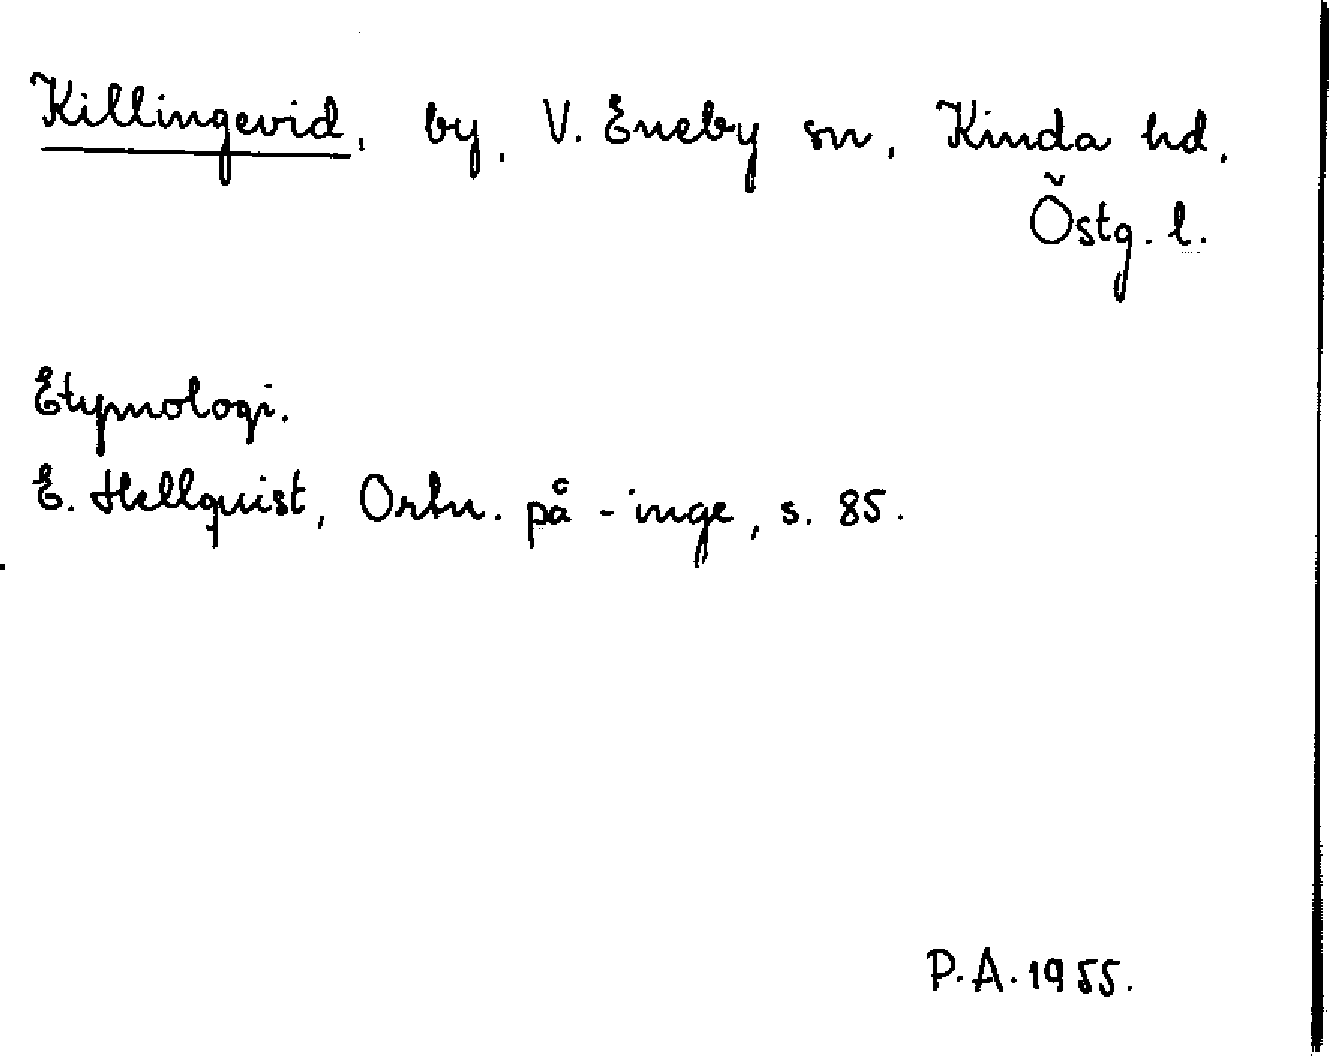 Killingevid, by, V. Eneby sn, Kinda hd,
Östg. l.
Etymologi.
E. Hellquist, Ortn. på -inge, s. 85.
P.A. 1955.